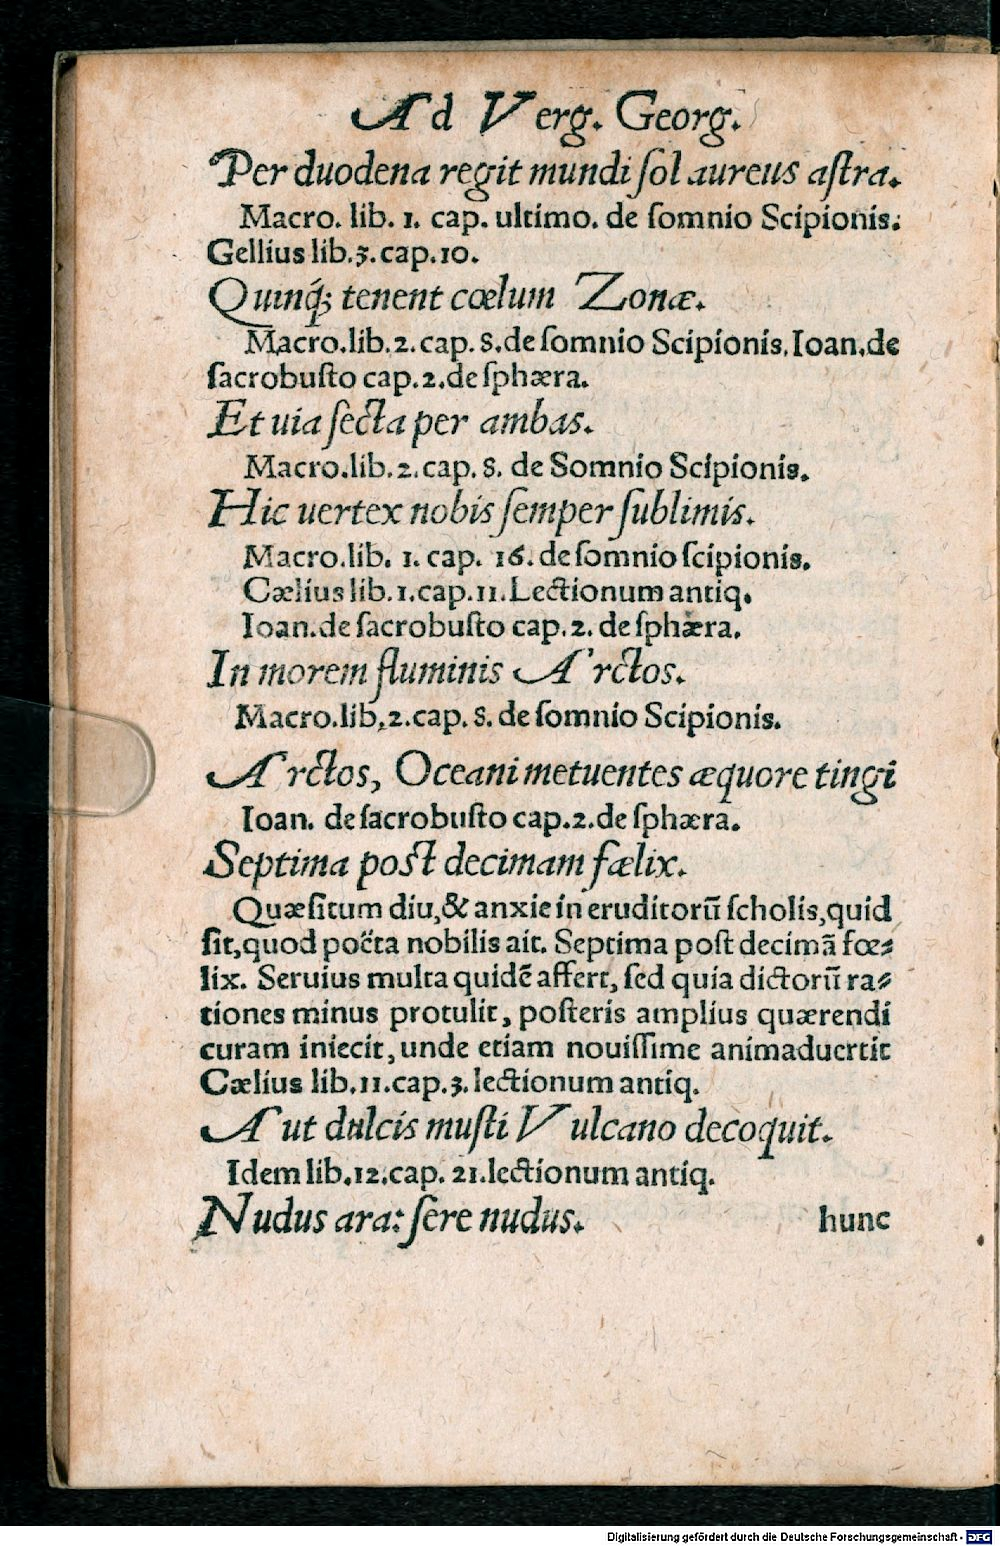 Ad Verg. Georg.
Per duodena regit mundi ſol aureus aſtra.
Macro. lib. 1. cap. ultimo. de ſomnio Scipionis.
Gellius lib.3.cap.10.
Quinq́; tenent cœlum Zonæ.
Macro.lib.2.cap.8.de ſomnio Scipionis.Ioan.de
ſacrobuſto cap.2.de ſphæra.
Et uia ſecta per ambas.
Macro.lib.2.cap.8. de Somnio Scipionis.
Hic uertex nobis ſemper ſublimis.
Macro.lib. 1. cap. 16. de ſomnio ſcipionis.
Cælius lib.1.cap.11.Lectionum antiq.
Ioan.de ſacrobuſto cap.2. de ſphæra.
In morem fluminis Arctos.
Macro.lib.2.cap.8. de ſomnio Scipionis.
Arctos, Oceani metuentes æquore tingi
Ioan. de ſacrobuſto cap.2.de ſphæra.
Septima poſt decimam fælix.
Quæſitum diu,& anxie in eruditorū ſcholis,quid
ſit,quod poëta nobilis ait. Septima poſt decimā fœ⸗
lix. Seruius multa quidē affert, ſed quia dictorū ra⸗
tiones minus protulit, poſteris amplius quærendi
curam iniecit,unde etiam nouiſſime animaduertit
Cælius lib.11.cap.3.lectionum antiq.
Aut dulcis muſti Vulcano decoquit.
Idem lib.12.cap. 21.lectionum antiq.
Nudus ara: ſere nudus. hunc
Digitalisierung gefördert durch die Deutsche Forschungsgemeinschaft - DFG